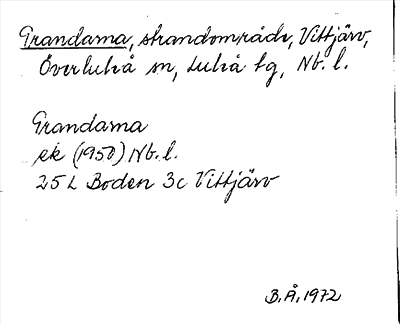 Grandarna, strandområde, Vittjärv,
Överluleå sn, Luleå tg, Nb. l.
Grandarna
ek (1950) Nb. l.
25 L Boden 3c Vittjärv
B. Å. 1972